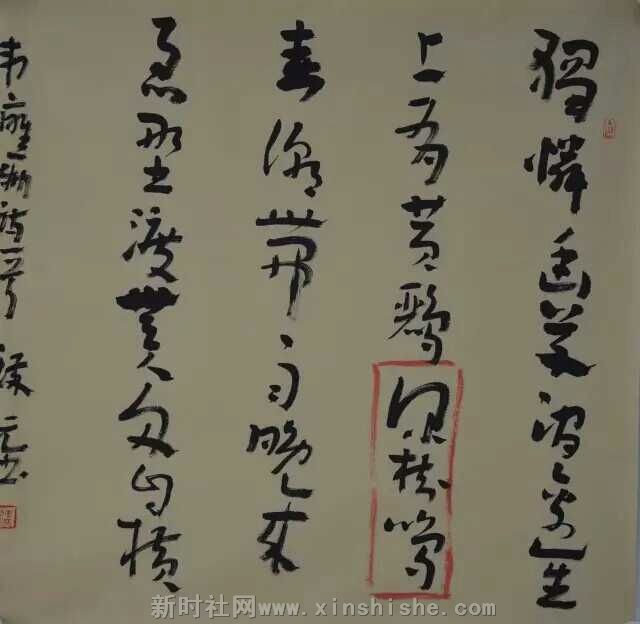 獨憐幽草澗邊生
上有黃鸝深樹鳴
春潮帶雨晚來
急野渡無人舟自橫
韋應物詩一首
新时社网www.xinshishe.com